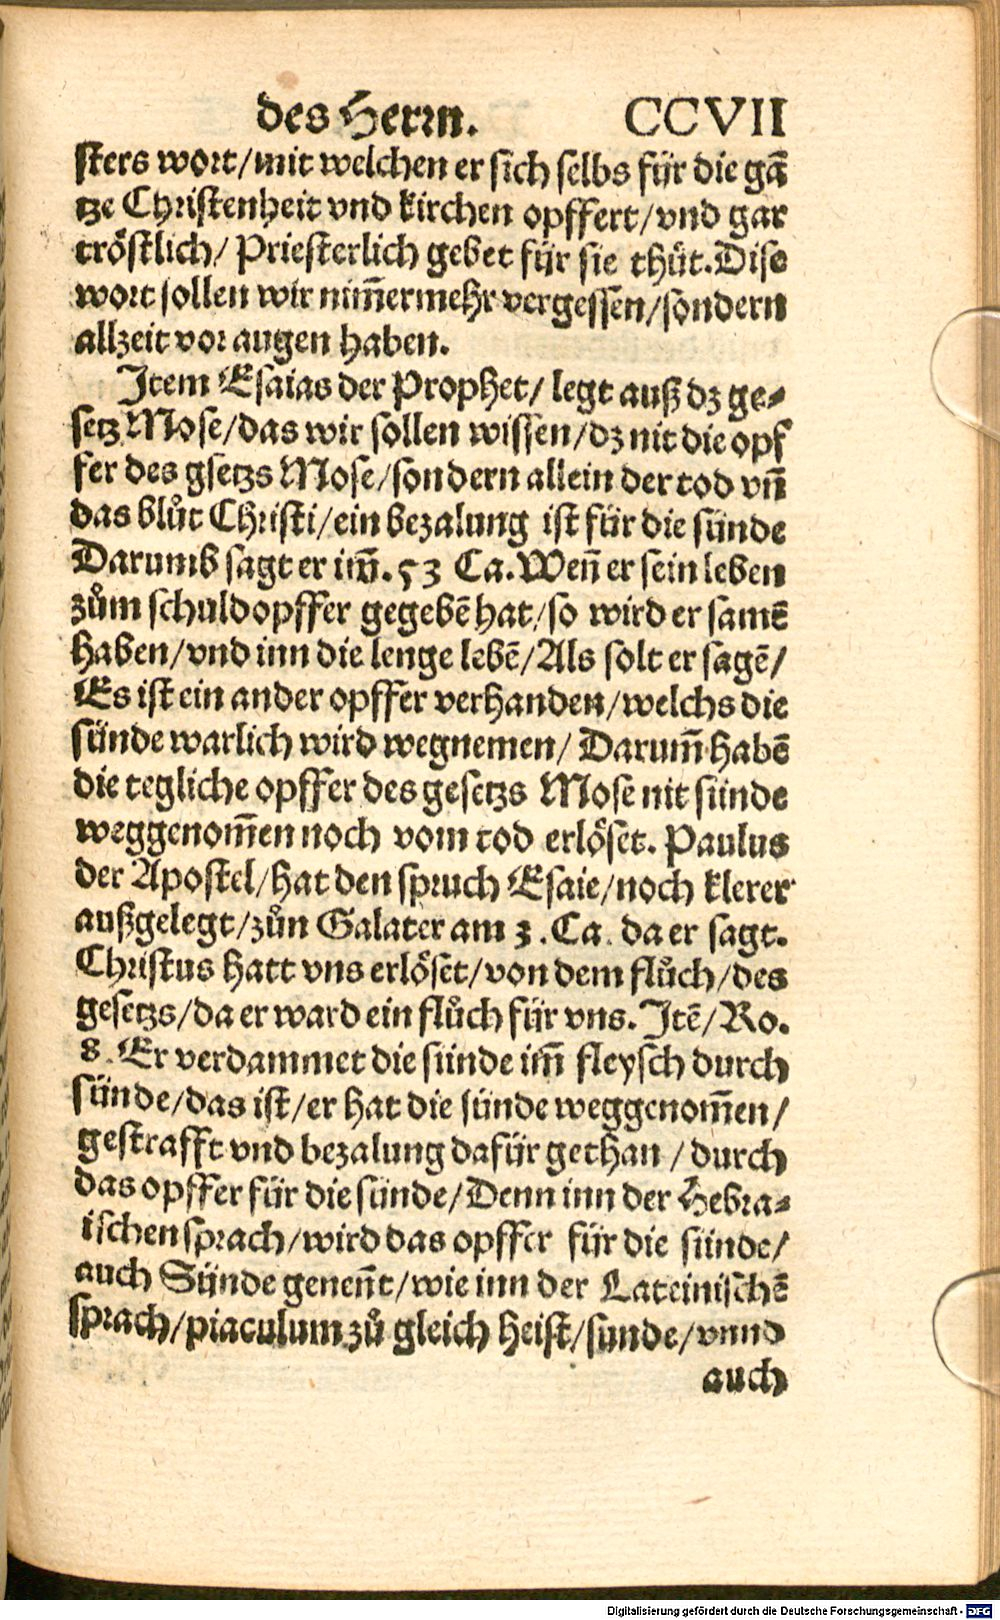 des Herrn. CCVII
sters wort/mit welchen er sich selbs für die gā
tze Christenheit vnd kirchen opffert/vnd gar
tröstlich/ Priesterlich gebet für sie thůt. Dise
wort sollen wir nim̄ermehr vergessen/sondern
allzeit vor augen haben.
Item Esaias der Prophet/ legt auß dz ge-
setz Mose/das wir sollen wissen/dz nit die opf
fer des gsetzs Mose/sondern allein der tod vn̄
das blůt Christi/ein bezalung ist für die sünde
Darumb sagt er im̄. 53 Ca. Wen̄ er sein leben
zům schuldopffer gegebē hat/so wird er samē
haben/vnd inn die lenge lebē/Als solt er sagē/
Es ist ein ander opffer verhanden/welchs die
sünde warlich wird wegnemen/ Darum̄ habē
die tegliche opffer des gesetzs Mose nit sünde
weggenom̄en noch vom tod erlöset. Paulus
der Apostel/hat den spruch Esaie/noch klerer
außgelegt/zůn Galater am 3. Ca. da er sagt.
Christus hatt vns erlöset/von dem flůch/des
gesetzs/da er ward ein flůch für vns. Itē/Ro.
8. Er verdammet die sünde im̄ fleysch durch
sünde/das ist/er hat die sünde weggenom̄en/
gestrafft vnd bezalung dafür gethan/durch
das opffer für die sünde/Denn inn der Hebra-
ischen sprach/wird das opffer für die sünde/
auch Sünde genen̄t/wie inn der Lateinischē
sprach/piaculum zů gleich heist/sunde/vnnd
auch
Digitalisierung gefördert durch die Deutsche Forschungsgemeinschaft - DFG